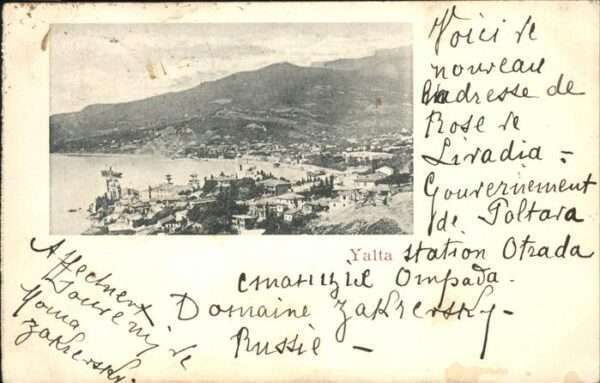 Voici de
nouveau
l'adresse de
Rose de
Livadia -
Gouvernement
de Poltava
Yalta
station Otrada
станцiя Отрада.
Domaine Zakrevsky -
Russie -
Affectueux
Souvenir de
Zakrevsky.